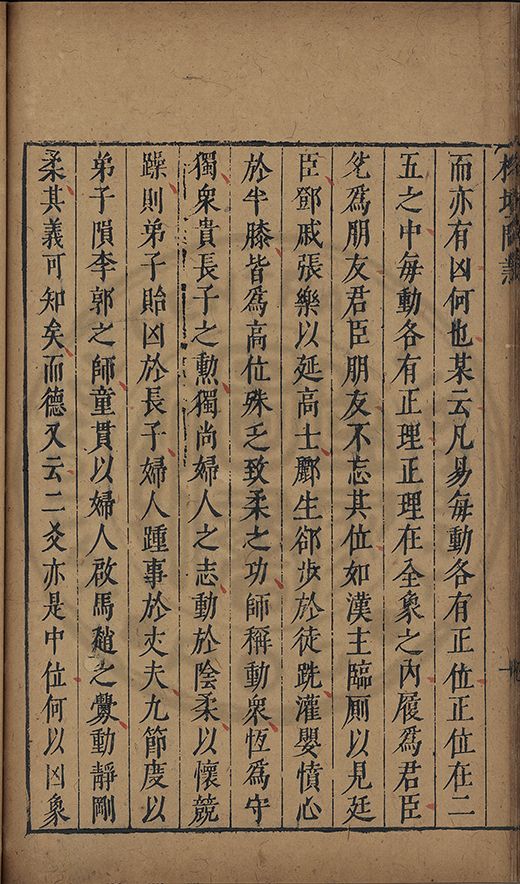 而亦有凶何也某云凡易每動各有正位正位在二
五之中每動各有正理正理在全象之內履爲君臣
兊爲朋友君臣朋友不忘其位如漢主臨厠以見廷
臣鄧戚張樂以延高士酈生郤步於徒跣灌嬰憤心
於半膝皆爲高位殊乏致柔之功師稱動衆恆爲守
獨衆貴長子之勲獨尚婦人之志動於陰柔以懷競
躁則弟子貽凶於長子婦人踵事於丈夫九節度以
弟子隕李郭之師童貫以婦人啟馬趙之釁動靜剛
柔其義可知矣而德又云二爻亦是中位何以凶象